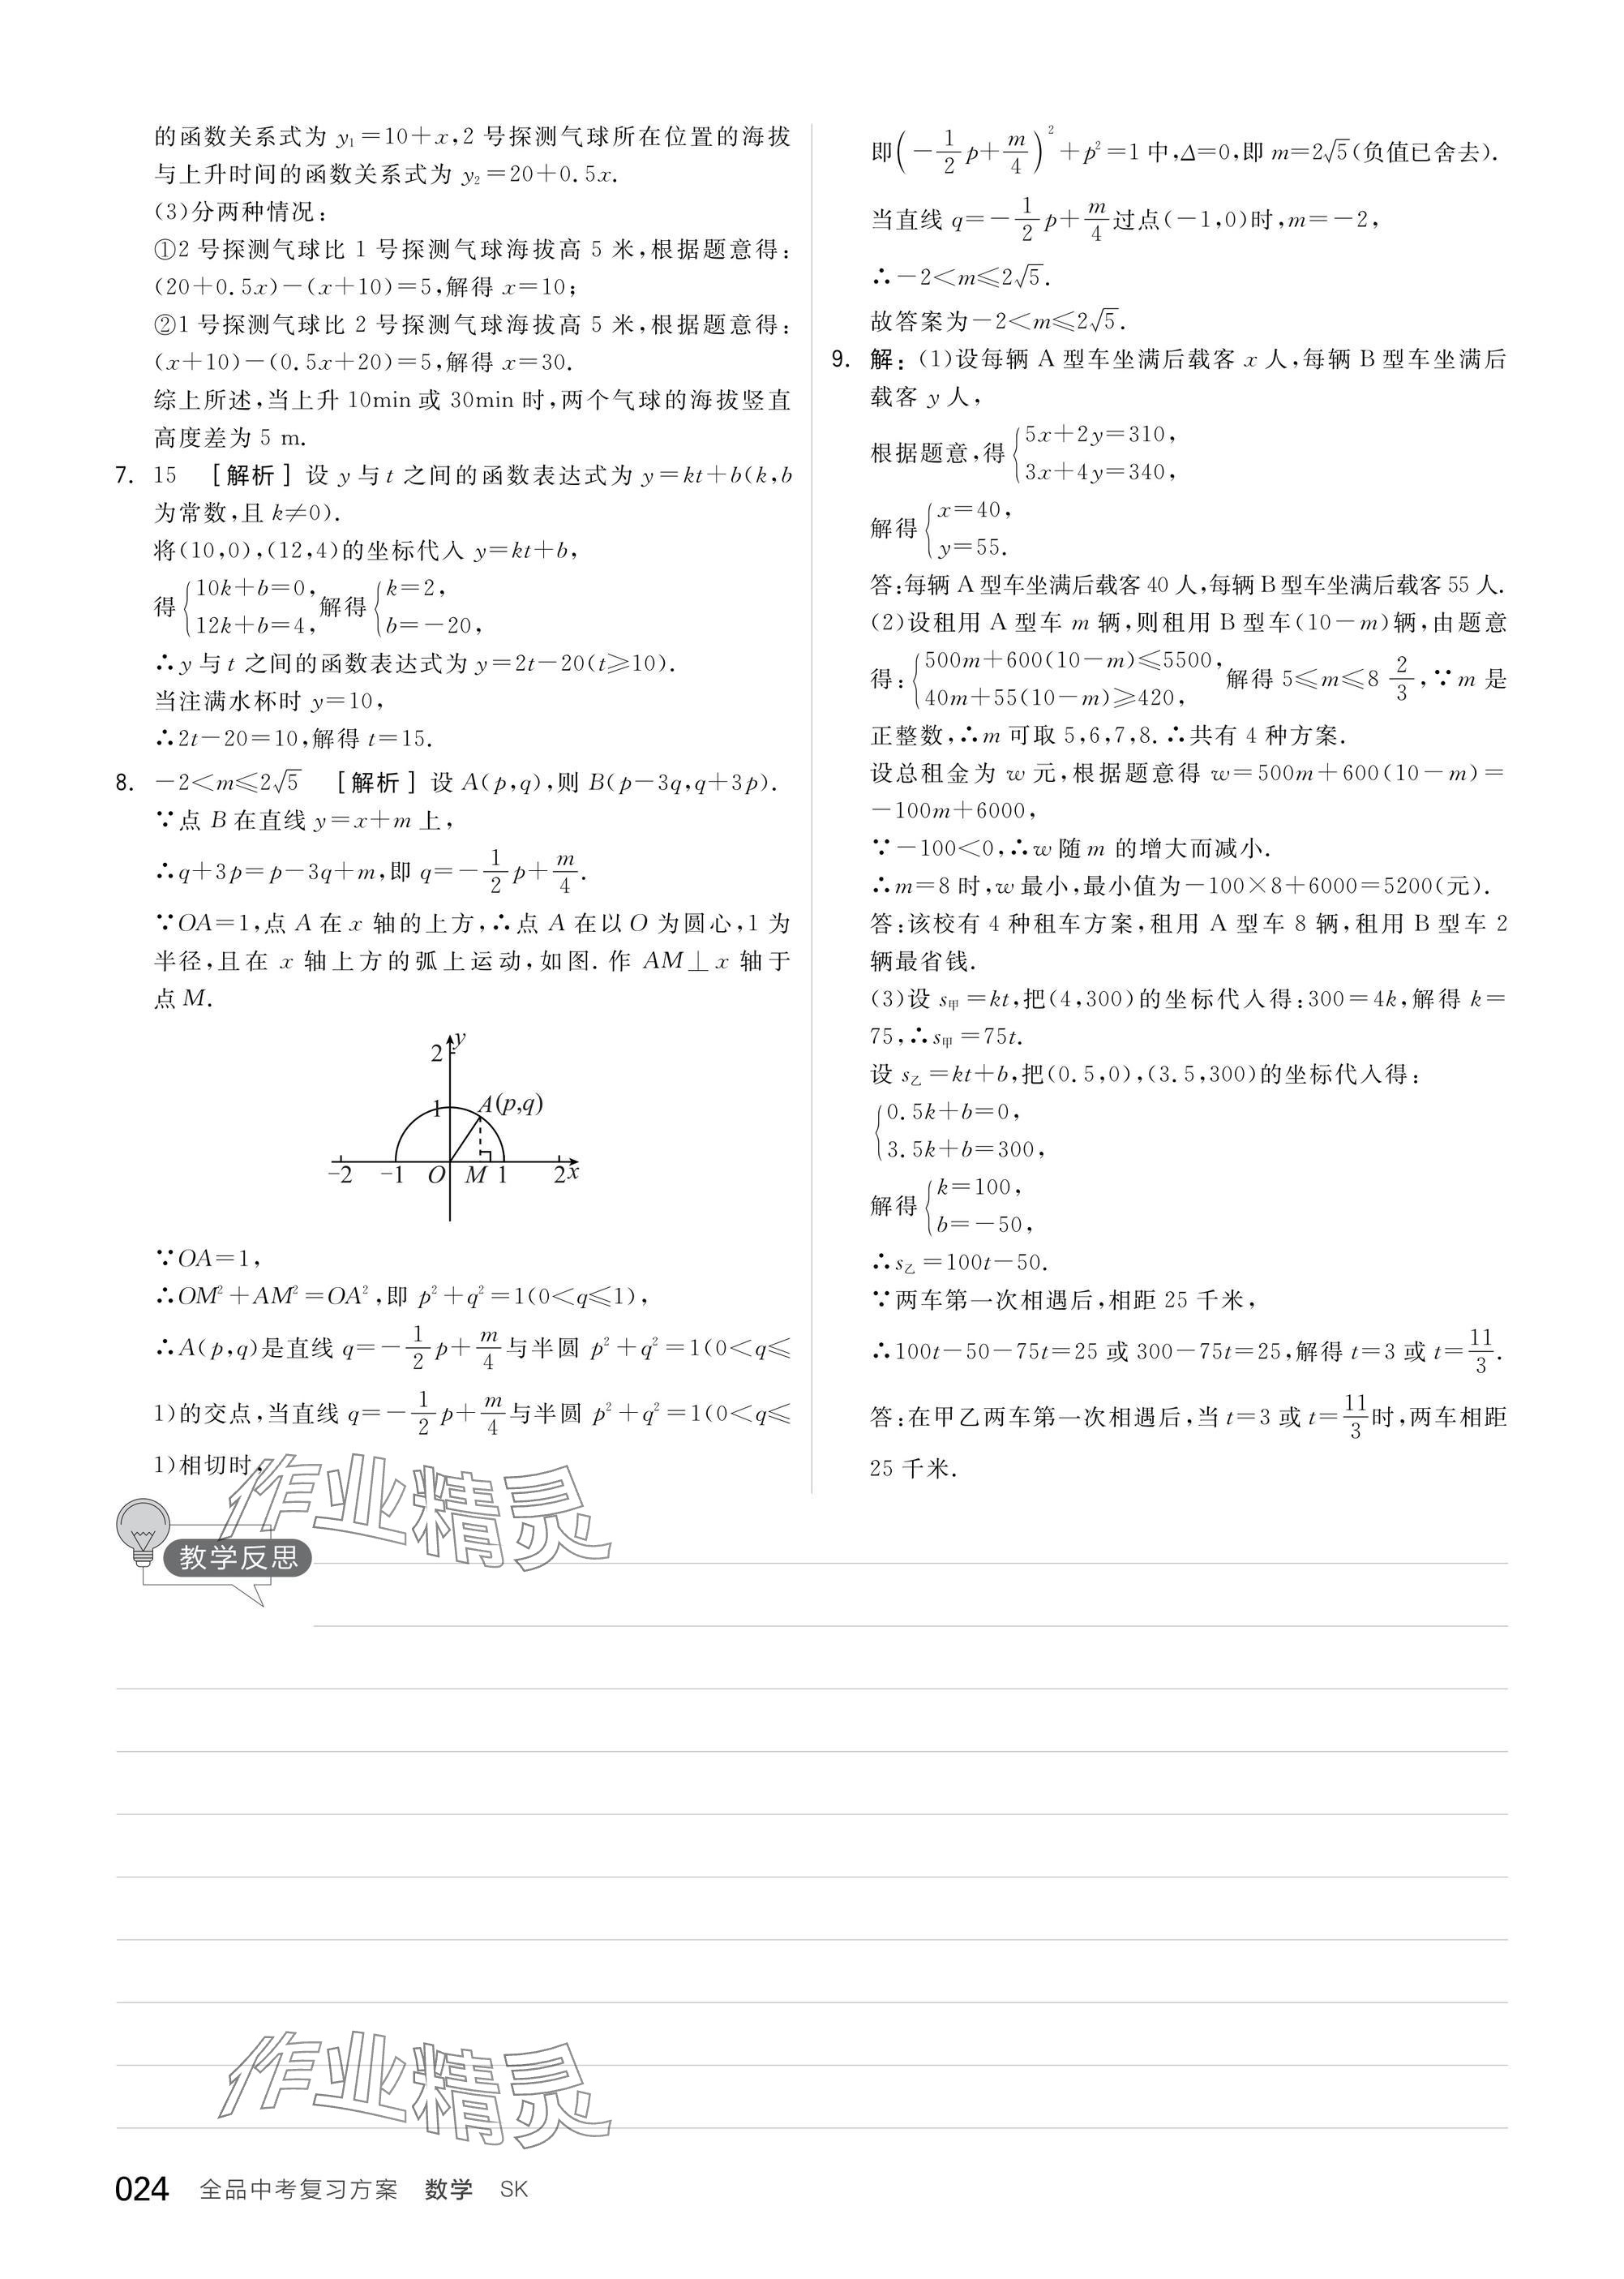 的函数关系式为 y₁=10+x,2 号探测气球所在位置的海拔
与上升时间的函数关系式为 y₂=20+0.5x.
(3)分两种情况:
①2 号探测气球比 1 号探测气球海拔高 5 米,根据题意得:
(20+0.5x)-(x+10)=5,解得 x=10;
②1 号探测气球比 2 号探测气球海拔高 5 米,根据题意得:
(x+10)-(0.5x+20)=5,解得 x=30.
综上所述,当上升 10min 或 30min 时,两个气球的海拔竖直
高度差为 5 m.
7. 15 [解析] 设 y 与 t 之间的函数表达式为 y=kt+b(k,b
为常数,且 k≠0).
将(10,0),(12,4)的坐标代入 y=kt+b,
得{10k+b=0, 12k+b=4, 解得{k=2, b=-20,
∴y 与 t 之间的函数表达式为 y=2t-20(t≥10).
当注满水杯时 y=10,
∴2t-20=10,解得 t=15.
8. -2<m≤2√5 [解析] 设 A(p,q),则 B(p-3q,q+3p).
∵点 B 在直线 y=x+m 上,
∴q+3p=p-3q+m,即 q=-1/2 p+m/4.
∵OA=1,点 A 在 x 轴的上方,∴点 A 在以 O 为圆心,1 为
半径,且在 x 轴上方的弧上运动,如图.作 AM⊥x 轴于
点 M.
y
2
1
A(p,q)
-2 -1 O M 1 2 x
∵OA=1,
∴OM²+AM²=OA²,即 p²+q²=1(0<q≤1),
∴A(p,q)是直线 q=-1/2 p+m/4 与半圆 p²+q²=1(0<q≤
1)的交点,当直线 q=-1/2 p+m/4 与半圆 p²+q²=1(0<q≤
1)相切时,
即(-1/2 p+m/4)²+p²=1 中,Δ=0,即 m=2√5(负值已舍去).
当直线 q=-1/2 p+m/4 过点(-1,0)时,m=-2,
∴-2<m≤2√5.
故答案为-2<m≤2√5.
9. 解:(1)设每辆 A 型车坐满后载客 x 人,每辆 B 型车坐满后
载客 y 人,
根据题意,得{5x+2y=310, 3x+4y=340,
解得{x=40, y=55.
答:每辆 A 型车坐满后载客 40 人,每辆 B 型车坐满后载客 55 人.
(2)设租用 A 型车 m 辆,则租用 B 型车(10-m)辆,由题意
得:{500m+600(10-m)≤5500, 40m+55(10-m)≥420, 解得 5≤m≤8 2/3,∵m 是
正整数,∴m 可取 5,6,7,8.∴共有 4 种方案.
设总租金为 w 元,根据题意得 w=500m+600(10-m)=
-100m+6000,
∵-100<0,∴w 随 m 的增大而减小.
∴m=8 时,w 最小,最小值为-100×8+6000=5200(元).
答:该校有 4 种租车方案,租用 A 型车 8 辆,租用 B 型车 2
辆最省钱.
(3)设 s甲=kt,把(4,300)的坐标代入得:300=4k,解得 k=
75,∴s甲=75t.
设 s乙=kt+b,把(0.5,0),(3.5,300)的坐标代入得:
{0.5k+b=0, 3.5k+b=300,
解得{k=100, b=-50,
∴s乙=100t-50.
∵两车第一次相遇后,相距 25 千米,
∴100t-50-75t=25 或 300-75t=25,解得 t=3 或 t=11/3.
答:在甲乙两车第一次相遇后,当 t=3 或 t=11/3 时,两车相距
25 千米.
作业精灵
教学反思
作业精灵
024 全品中考复习方案 数学 SK